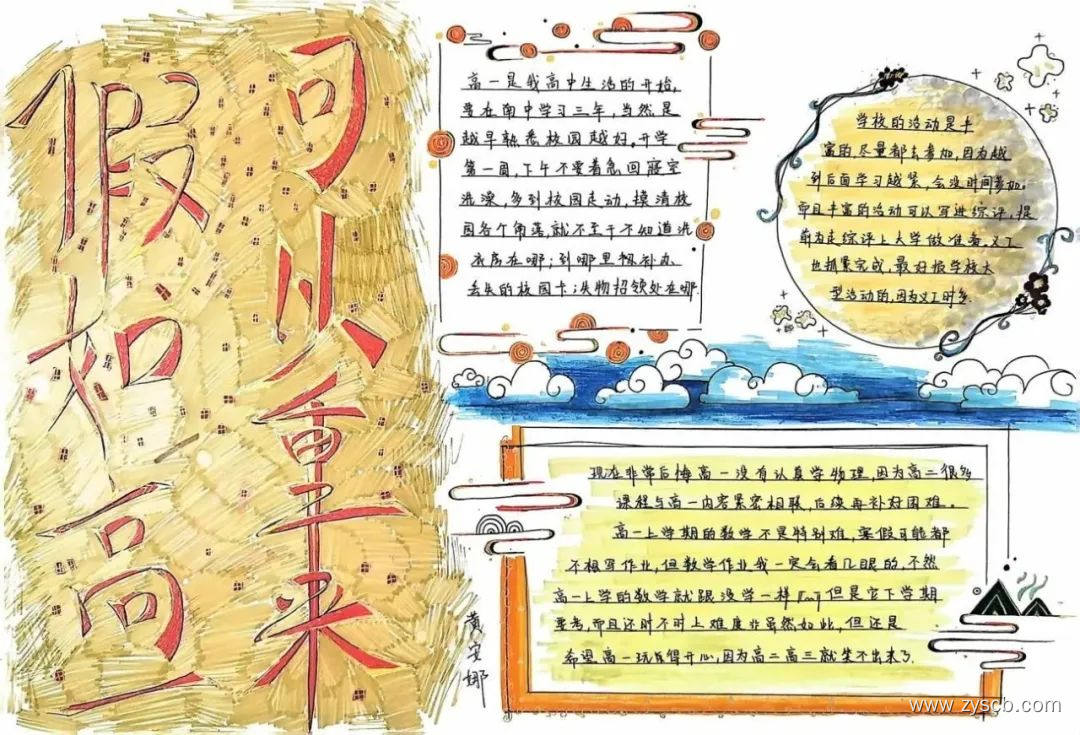 假如高一
可以重来
高一是我高中生活的开始,
要在南中学习三年,当然是
越早熟悉校园越好。开学
第一周,下午不要着急回寝室
洗澡,多到校园走动,摸清校
园各个角落,就不至于不知道洗
衣房在哪;到哪里补办
丢失的校园卡;失物招领处在哪.
学校的活动是丰
富的,尽量都去参加,因为越
到后面学习越紧,会没时间参加。
而且丰富的活动可以写进综评,提
前为走综评上大学做准备。义工
也抓紧完成,最好报学校大
型活动的,因为义工时多.
现在非常后悔高一没有认真学物理,因为高二很多
课程与高一内容紧密相联,后续再补好困难。
高一上学期的数学不是特别难,寒假可能都
不想写作业,但数学作业我一定会看几眼的,不然
高一上学的数学就跟没学一样 但是它下学期
要考,而且还时不时上难度 虽然如此,但还是
希望高一玩得开心,因为高二高三就笑不出来了.
黄安娜
www.zyscb.com